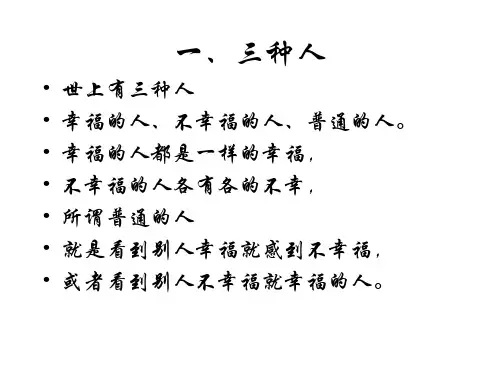 一、三种人
• 世上有三种人
• 幸福的人、不幸福的人、普通的人。
• 幸福的人都是一样的幸福，
• 不幸福的人各有各的不幸，
• 所谓普通的人
• 就是看到别人幸福就感到不幸福，
• 或者看到别人不幸福就幸福的人。